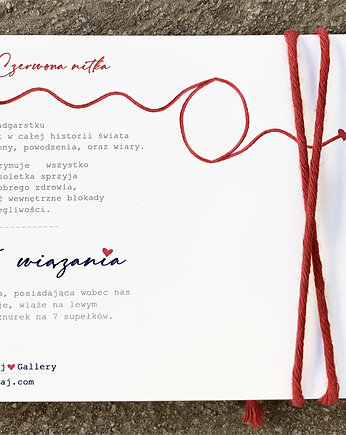 Czerwona nitka
adgarstku
k w całej historii świata
ony, powodzenia, oraz wiary.
zymuje wszystko
soletka sprzyja
obrego zdrowia,
ć wewnętrzne blokady
egliwości.
wiązania
a, posiadająca wobec nas
je, wiąże na lewym
znurek na 7 supełków.
j Gallery
aj.com